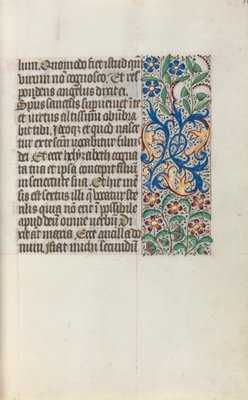 lium. Quomodo fiet istud qui
virum nō cognosco. Et res
pondens angelus dixit ei.
Spūs sanctus superveniet ī te
et virtus altissimi obūbra
bit tibi. Ideoq; et quod nasce
tur ex te sctm̄ vocabitur filius
dei. Et ecce helyzabeth cogna
ta tua et ipsa concepit filium
in senectute sua. Et hic mē
sis est sextus illi q̄ vocatur ste
rilis quia nō erit īpossibile
apud deū omne verbū. Di
xit at̄ maria. Ecce ancilla do
mini, fiat michi secundū